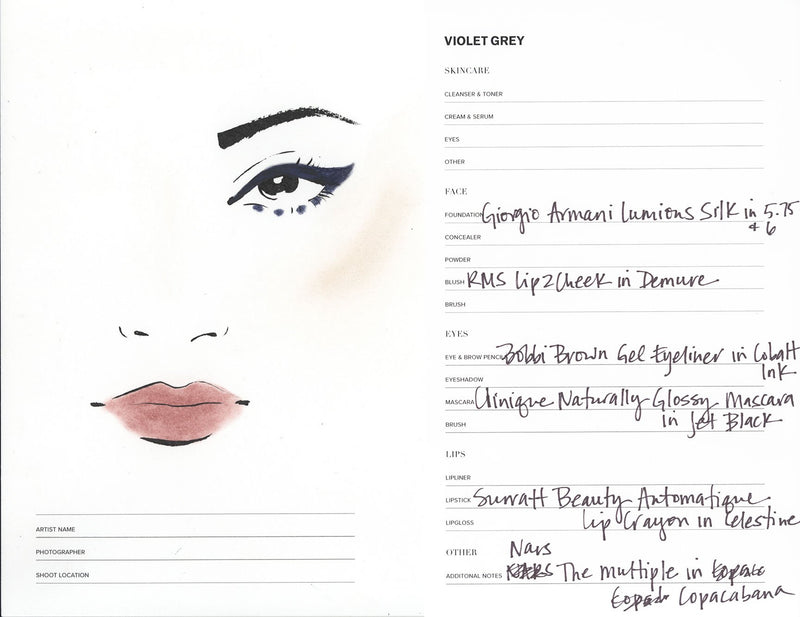 VIOLET GREY
SKINCARE
CLEANSER & TONER
CREAM & SERUM
EYES
OTHER
FACE
FOUNDATION Giorgio Armani Lumious Silk in 5.75
& 6
CONCEALER
POWDER
BLUSH RMS Lip2Cheek in Demure
BRUSH
EYES
EYE & BROW PENCIL Bobbi Brown Gel Eyeliner in Cobalt
Ink
EYESHADOW
MASCARA Clinique Naturally Glossy Mascara
in Jet Black
BRUSH
LIPS
LIPLINER
LIPSTICK Surratt Beauty Automatique
LIPGLOSS Lip Crayon in Celestine
OTHER Nars
ADDITONAL NOTES The Multiple in
Copacabana
ARTIST NAME
PHOTOGRAPHER
SHOOT LOCATION